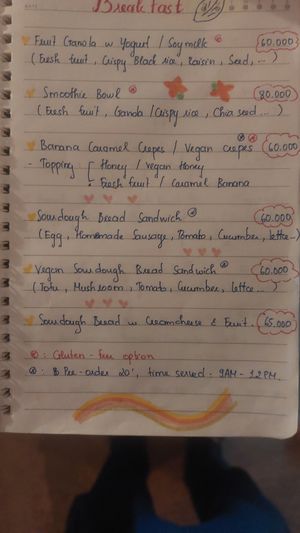 Breakfast
Fruit Granola w Yogurt / Soymilk 60.000
(Fresh fruit, Crispy Black rice, Raisin, Seed, ...)
Smoothie Bowl 80.000
(Fresh fruit, Ganola / Crispy rice, Chia seed ...)
Banana Caramel Crepes / Vegan crepes 60.000
- Topping [ • Honey / Vegan Honey
• Fresh fruit / Caramel Banana
Sourdough Bread Sandwich 60.000
(Egg, Homemade Sausage, Tomato, Cucumber, lettce...)
Vegan Sourdough Bread Sandwich 60.000
(Tofu, Mushroom, Tomato, Cucumber, lettce ...)
Sourdough Bread w Creamcheese & Fruit. 65.000
: Gluten - free option
: Pre-order 20', time served - 9AM - 12PM.